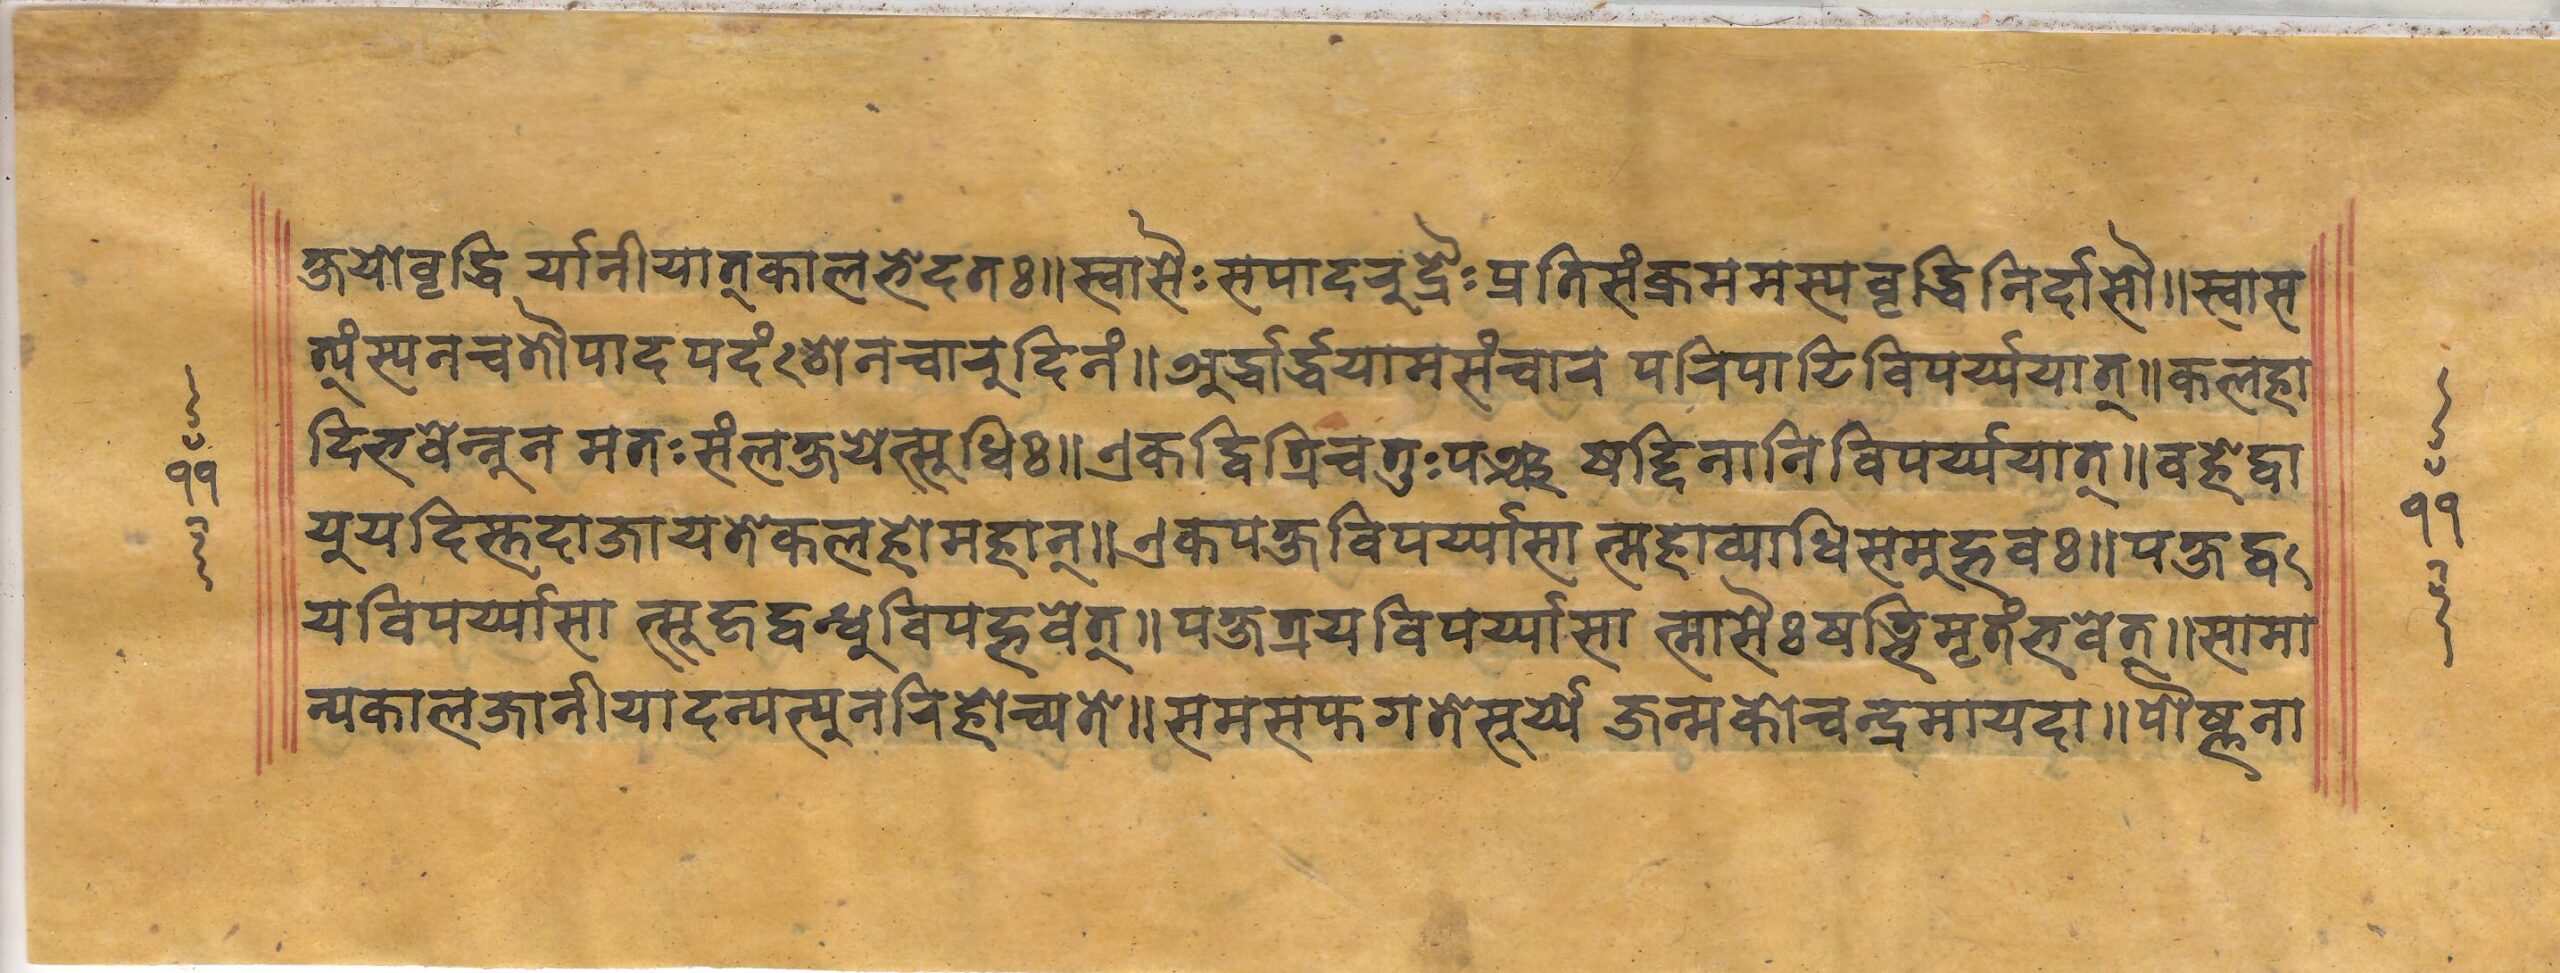 क्षयोवृद्धि र्यानीयात्कालभेदतः॥स्वासैःसपादरुद्रैःप्रतिसंक्रममस्यवृद्धिनिर्दासौ॥स्वास
त्यंस्यनचतौपादपदंशेनचारुदिनं॥अर्द्धार्द्धयामसंचार परिपाटिविपर्य्ययात्॥कलहा
दिभवेन्नुन मतःसंलक्षयेत्सुधिः॥एकद्वित्रिचतुःपञ्च षद्दिनानिविपर्य्ययात्॥वहेद्वा
युयदिस्तदाजायतेकलहोमहान्॥एकपक्षविपर्य्यासा त्महाव्याधिसमुद्भवः॥पक्षद्व
यविपर्य्यासा त्सुहृद्वन्धुविपद्भवेत्॥पक्षत्रयविपर्य्यासा त्मासैःषड्भिमृतंभवेत्॥सामा
न्यकालजानीयादन्यत्पुनरिहोच्यते॥समसप्तगतेसूर्य्ये जन्मकोचन्द्रमायदा॥पौष्णना
११
११